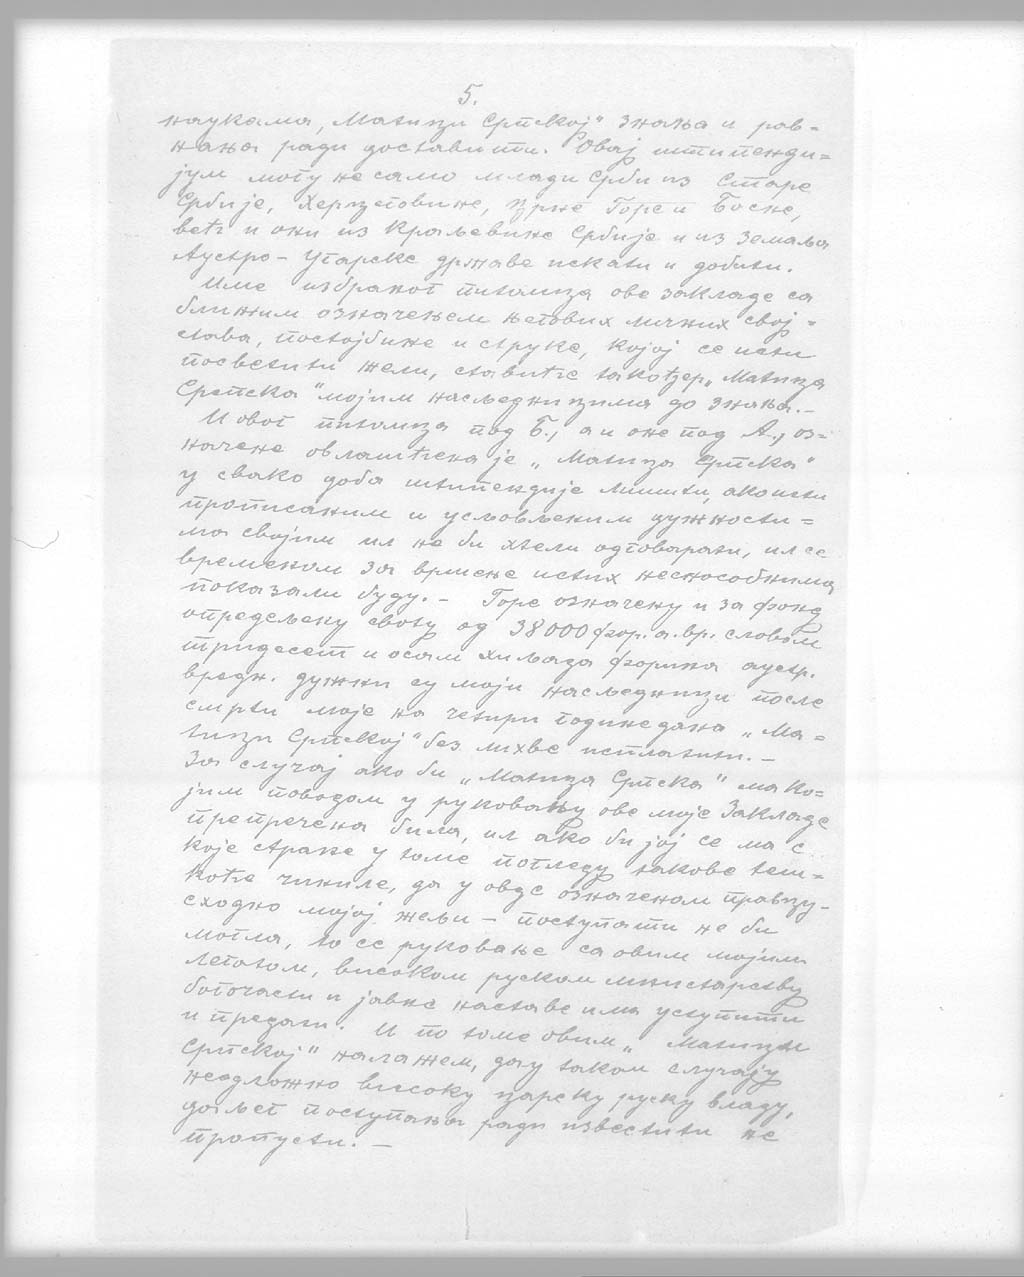 5.
наукама, „Матици Српској“ знања и рав=
нања ради доставити. Овај штипенди=
јум могу не само млади Срби из Старе
Србије, Херцеговине, Црне Горе и Босне,
већ и они из Краљевине Србије и из Земаља
Аустро – Угарске државе искати и добити.
Име избраног питомца ове закладе са
ближим означењем његових личних свој=
става, постојбине и струке, којој се исти
посветити жели, ставиће такођер „Матица
Српска“ мојим насљедницима до знања. –
И овог питомца под Б., а и оне под А., оз=
начене овлашћена је „Матица Српска“
у свако доба штипендије лишити, ако исти
прописаним и условљеним дужности=
ма својим ил не би хтели одговарати, ил се
временом за вршење истих неспособнима
показали буду. – Горе означену и за фонд
опредељену своту од 38000 фор. а. вр. словом
тридесет и осам хиљада форина аустр.
вредн. дужни су моји насљедници после
смрти моје на четири године дана „Ма=
тици Српској“ без лихве исплатити. –
За случај ако би „Матица Српска“ ма ко=
јим поводом у руковању ове моје Закладе
препречена била, ил ако би јој се ма с
које стране у томе погледу такове теш=
коће чиниле, да у овде означеном правцу –
сходно мојој жељи – поступати не би
могла, то се руковање са овим мојим
легатом, високом руском министарству
богочасти и јавне наставе има уступити
и предати. И по томе овим „Матици
Српској“ налажем, да у таком случају
неодложно високу царску руску владу,
даљег поступања ради известити не
пропусти. –